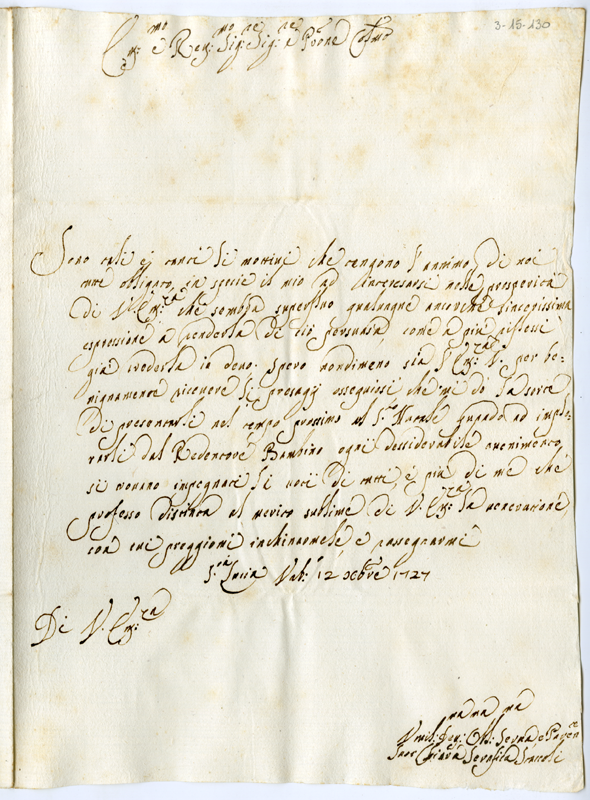 3-15-130
Em:mo e Rev:mo Sig:re Sig:re e P̃rone Col̃mo
Sono tali e tanti li mottivi che tengono l'animo di noi
tutte obligato, in specie il mio ad interesarsi nelle prosperità
di V. Em:za che sembra superfluo qualunque ancorche sincerissima
espressione a renderla di ciò persuasa, come a più riflessi
già crederla io devo. Spero nondimeno sia l'Em:za V. per be-
nignamente ricevere li presaggi ossequiosi, che mi do la sorte
di presentarle nel tempo prossimo al S:to Natale, quando ad implo-
rarli dal Redentore Bambino ogni dessiderabile avenimento,
si trovano impegnati li voti di tutte, e più di me che
professo distinta al merito sublime di V. Em:za la veneratione,
con cui preggiomi inchinarmele e rassegnarmi
S:ta Lucia 12 Xbre 1727
Di V. Em:za
Umil:ma Dev:ma Obl:ma Serva e
Suor Chiara Serafica